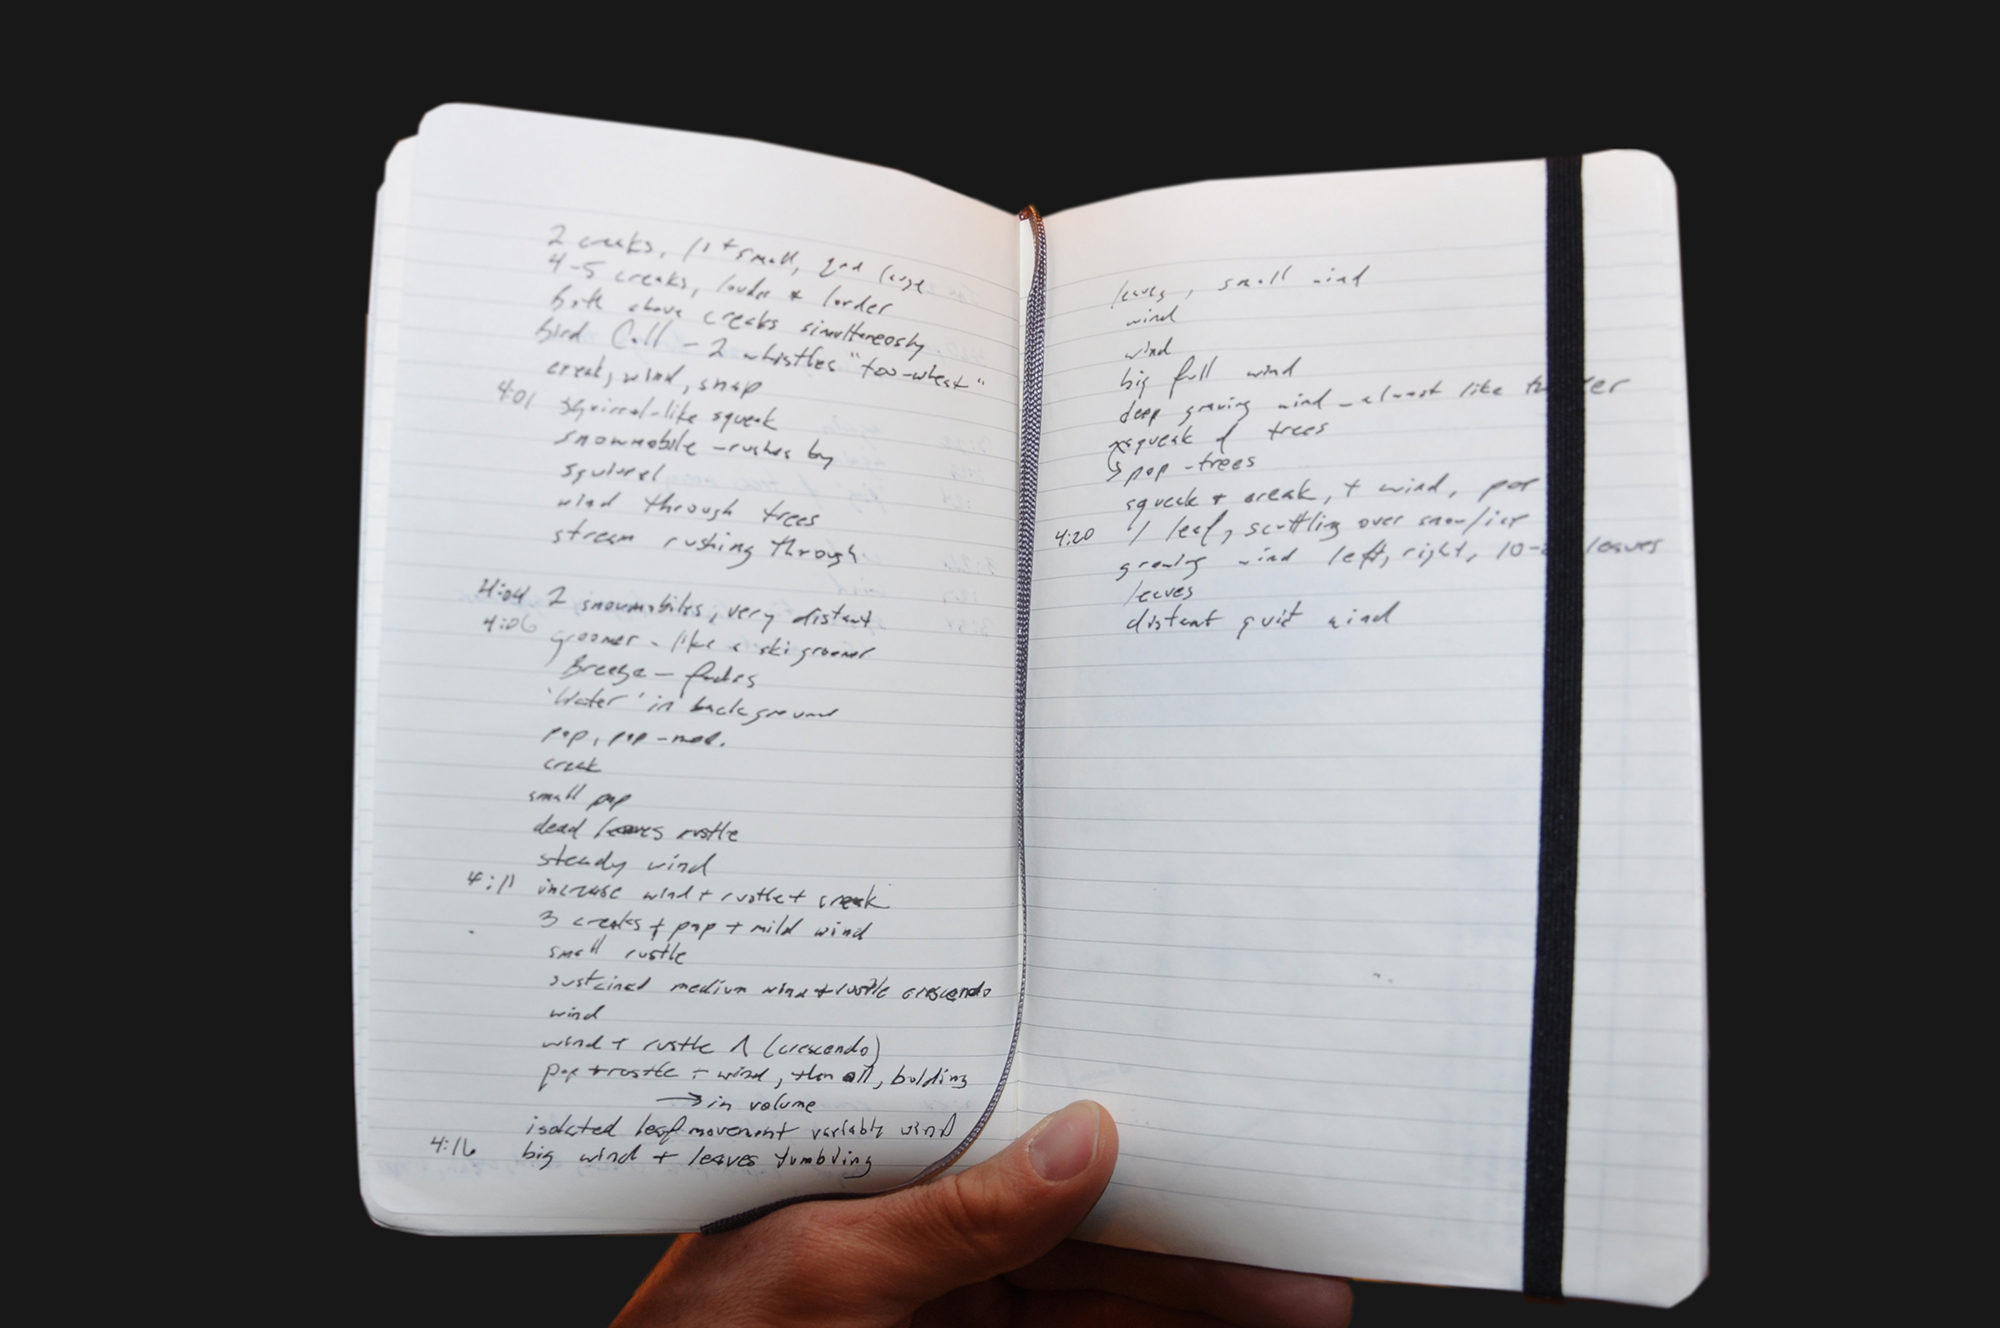 2 creaks, 1st small, 2nd large
4-5 creaks, louder + louder
both above creaks simultaneously
bird Call - 2 whistles "too-wheat"
creak, wind, snap
4:01 squirrel-like squeak
snowmobile - rushes by
squirrel
wind through trees
stream rushing through
4:04 2 snowmobiles, very distant
4:06 groomer - like a ski groomer
Breeze - fades
'Water' in background
pop, pop - med.
creak
small pop
dead leaves rustle
steady wind
4:11 increase wind + rustle + creak
3 creaks + pop + mild wind
small rustle
sustained medium wind + rustle crescendo
wind
wind + rustle Λ (crescendo)
pop + rustle + wind, then all, bulding
→ in volume
isolated leaf movement variably wind
4:16 big wind + leaves tumbling
leaves, small wind
wind
wind
big full wind
deep growing wind - almost like
squeak of trees
pop - trees
squeak + creak, + wind, pop
4:20 1 leaf, scuttling over snow/ice
growing wind left, right, 10- leaves
leaves
distant quiet wind